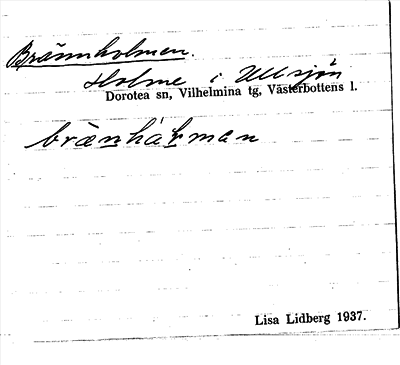 Brännholmen.
Holme i Ullsjön
Dorotea sn, Vilhelmina tg, Västerbottens l.
brànhálman
Lisa Lidberg 1937.